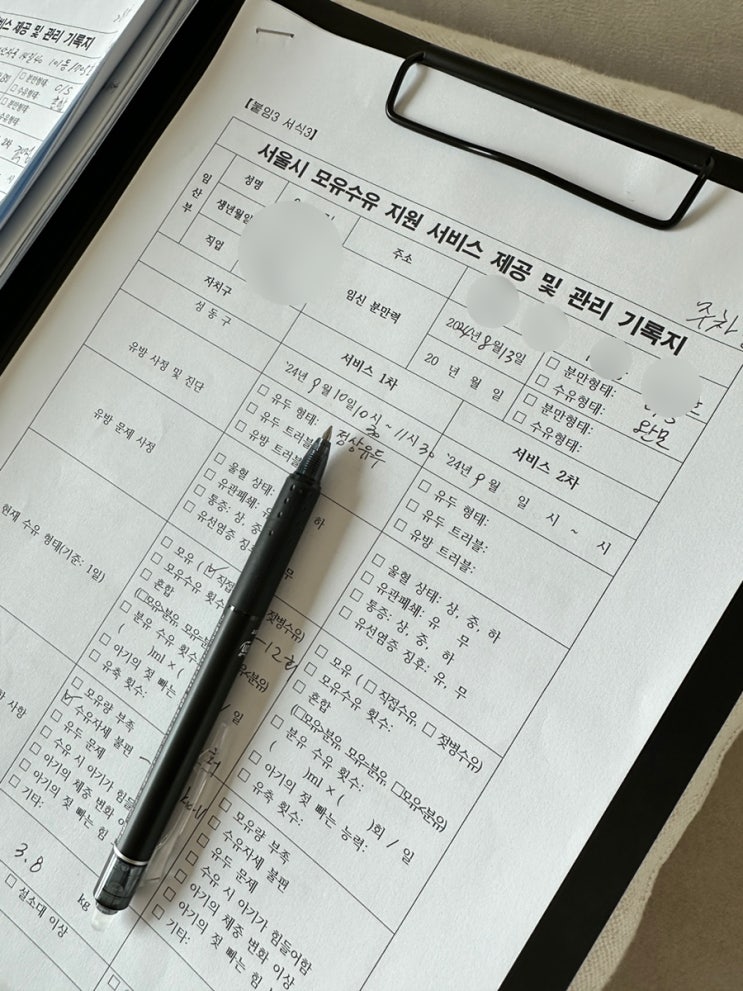 비스 제공 및 관리 기록지
[붙임3 서식3]
서울시 모유수유 지원 서비스 제공 및 관리 기록지
임산부
성명
생년월일
직업
주소
임신 분만력
2024년 8월 13일
20 년 월 일
□ 분만형태:
□ 수유형태:
□ 분만형태:
□ 수유형태:
완모
자치구
성동구
서비스 1차
'24년 9월 10일 10시 30 ~ 11시 30
서비스 2차
'24년 9월 일 시 ~ 시
유방 사정 및 진단
□ 유두 형태: 정상유두
□ 유두 트러블
□ 유방 트러블
□ 유두 형태:
□ 유두 트러블:
□ 유방 트러블:
유방 문제 사정
□ 울혈 상태:
□ 유관폐쇄:
□ 통증: 상, 중, 하
□ 유선염증 징 무
□ 울혈 상태: 상, 중, 하
□ 유관폐쇄: 유 무
□ 통증: 상, 중, 하
□ 유선염증 징후: 유, 무
현재 수유 형태(기준: 1일)
□ 모유 (☑ 직접 젖병수유)
□ 모유수유 횟수 12회
□ 혼합
(□모유>분유 모유=분유 모유<분유)
□ 분유 수유 횟수:
( )ml × ( / 일
□ 아기의 젖 빠는
□ 유축 횟수:
□ 모유 ( □ 직접수유, □ 젖병수유)
□ 모유수유 횟수:
□ 혼합
(□모유>분유 모유=분유 □모유<분유)
□ 분유 수유 횟수:
( )ml × ( )회 / 일
□ 아기의 젖 빠는 능력:
□ 유축 횟수:
사항
□ 모유량 부족
☑ 수유자세 불편
□ 유두 문제
□ 수유 시 아기가 힘들
□ 아기의 체중 변화 이
□ 아기의 젖 빠는 힘
□ 기타:
□ 모유량 부족
□ 수유자세 불편
□ 유두 문제
□ 수유 시 아기가 힘들어함
□ 아기의 체중 변화 이상
□ 아기의 젖 빠는 힘
□ 기타:
3.8 kg
□ 설소대 이상